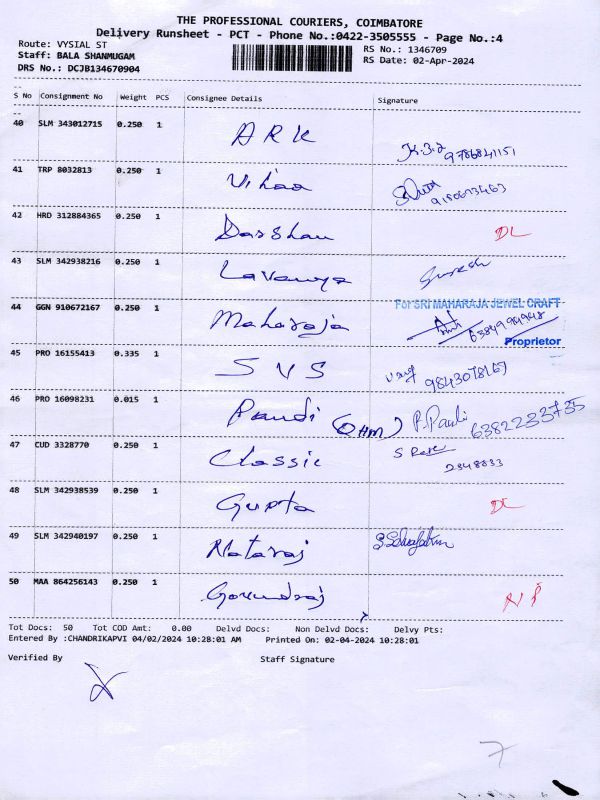 THE PROFESSIONAL COURIERS, COIMBATORE
Delivery Runsheet - PCT - Phone No.:0422-3505555 - Page No.:4
Route: VYSIAL ST RS No.: 1346709
Staff: BALA SHANMUGAM RS Date: 02-Apr-2024
DRS No.: DCJB134670904
S No Consignment No Weight PCS Consignee Details Signature
40 SLM 343012715 0.250 1 ARK 9786841151
41 TRP 8032813 0.250 1 Vihaa 9150673463
42 HRD 312884365 0.250 1 Darshan DL
43 SLM 342938216 0.250 1 Lavanya Suresh
44 GGN 910672167 0.250 1 Maharaja For SRI MAHARAJA JEWEL CRAFT
Proprietor
45 PRO 16155413 0.335 1 SVS 9843078167
46 PRO 16098231 0.015 1 Pandi (OHM) P. Pauli 6382233735
47 CUD 3328770 0.250 1 Classic 2848833
48 SLM 342938539 0.250 1 Gupta DL
49 SLM 342940197 0.250 1 Nataraj
50 MAA 864256143 0.250 1 Govindraj NP
Tot Docs: 50 Tot COD Amt: 0.00 Delvd Docs: Non Delvd Docs: Delvy Pts:
Entered By :CHANDRIKAPVI 04/02/2024 10:28:01 AM Printed On: 02-04-2024 10:28:01
Verified By Staff Signature
7